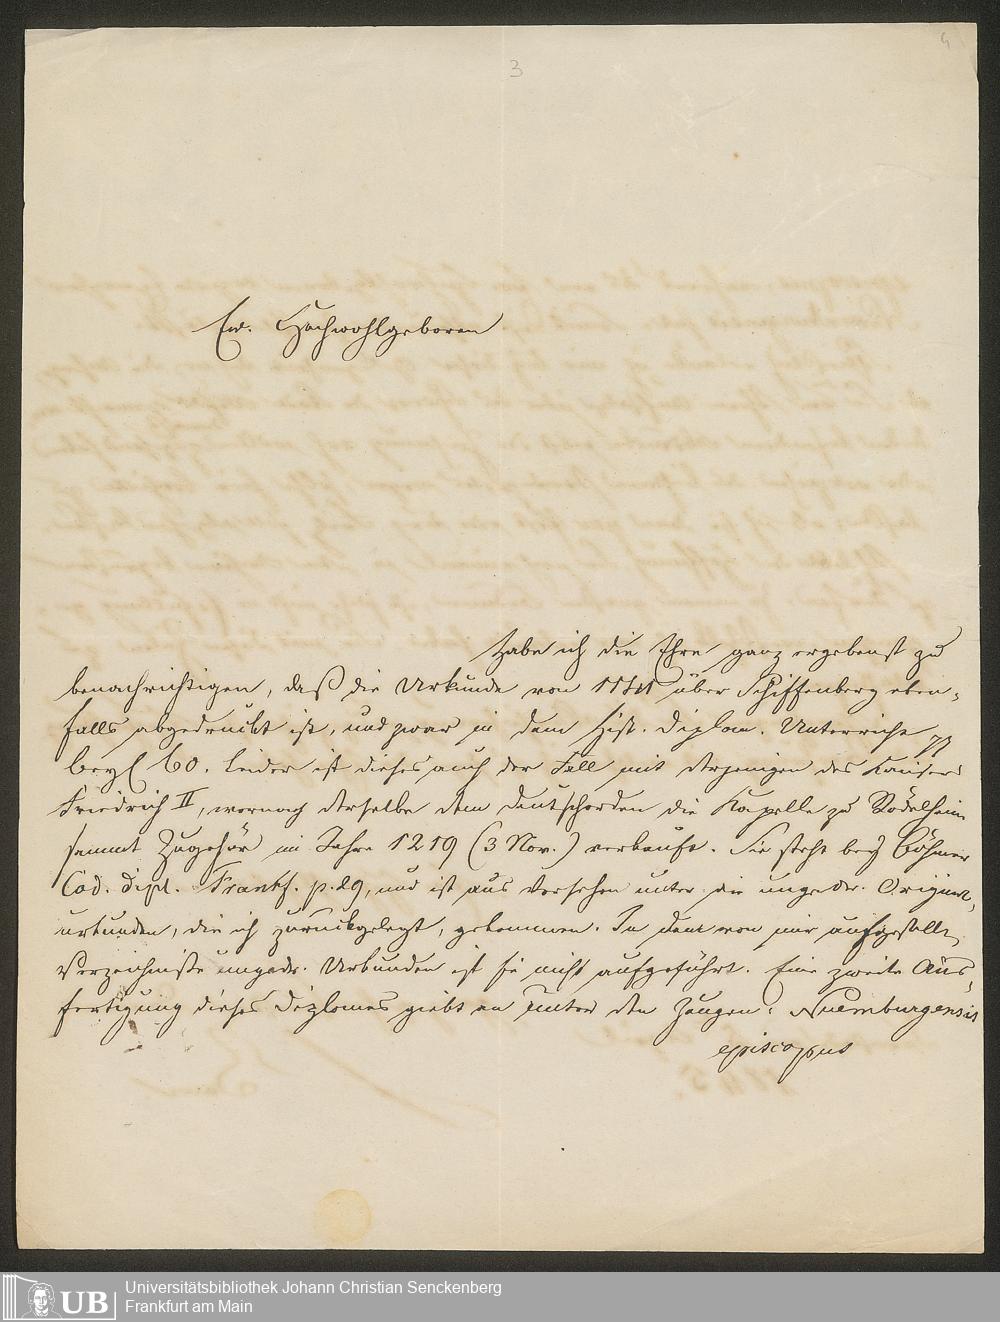 4
3
Ew. Hochwohlgeboren
habe ich die Ehre ganz ergebenst zu
benachrichtigen, daß die Urkunde von 1141 über Schiffenberg eben-
falls abgedruckt ist, und zwar in dem hist. diplom. Unterricht
Beyl 60. Leider ist dieses auch der Fall mit derjenigen des Kaisers
Friedrich II, wornach derselbe dem deutschorden die Kapelle zu Rödelheim
sammt Zugehör im Jahre 1219 (3 Nov.) verkauft. Sie steht bey Böhmer
Cod. dipl. Frankf. p. 29, und ist aus Versehen unter die ungedr. Original-
urkunden, die ich zurückgelegt, gekommen. In dem von mir aufgestellten
Verzeichniße ungedr. Urkunden ist sie nicht aufgeführt. Eine zweite Aus-
fertigung dieses Diplomes giebt an unter den Zeugen: Nuemburgensis
episcopus
UB
Universitätsbibliothek Johann Christian Senckenberg
Frankfurt am Main